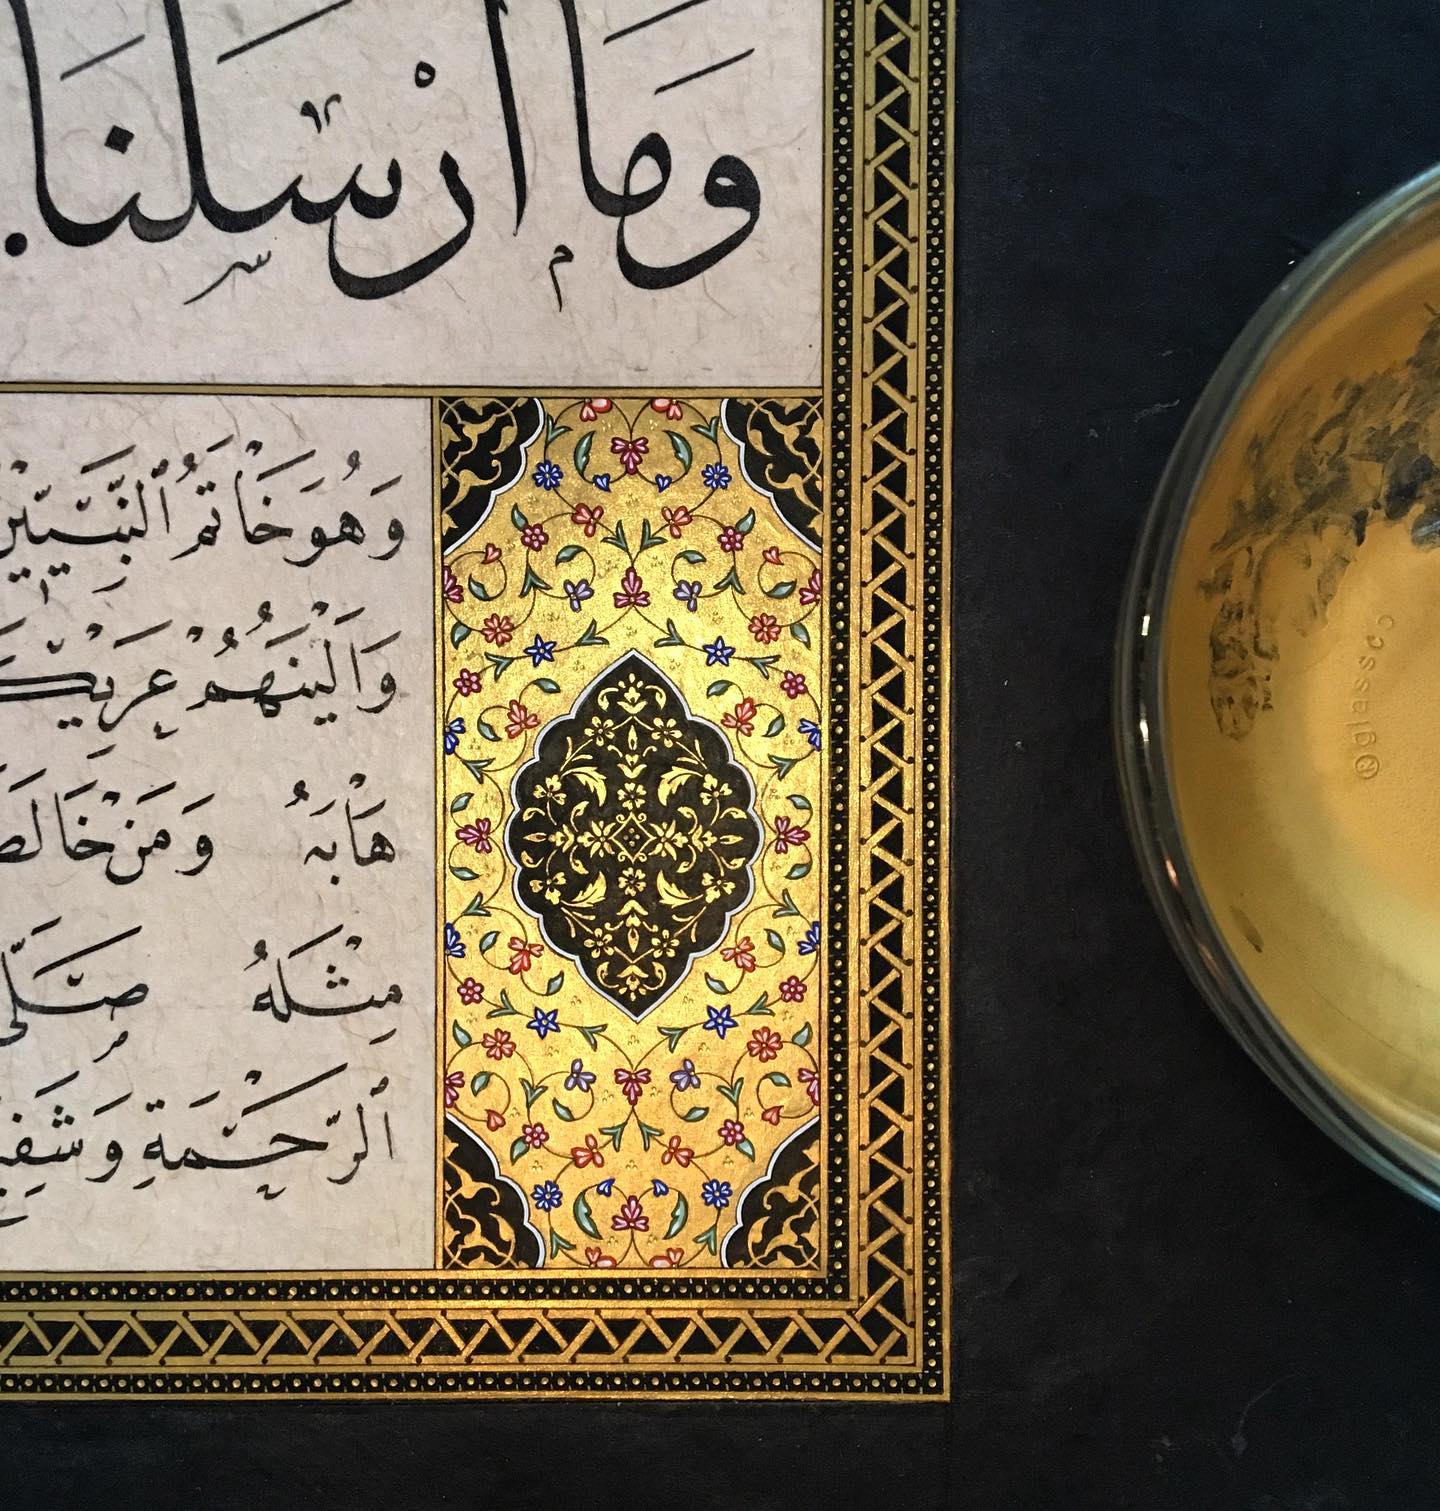 وَمَا أَرْسَلْنَا
وَهُوَ خَاتَمُ ٱلنَّبِيِّينَ
وَأَلْيَنَهُمْ عَرِيكَ
هَابَهُ وَمَنْ خَالَطَ
مِثْلَهُ صَلَّى
ٱلرَّحْمَةِ وَشَفِي
®glassco